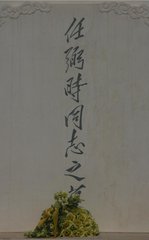 任弼時同志之墓